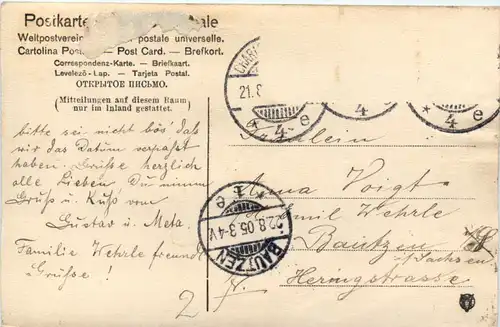 Postkarte
Weltpostverein postale universelle.
Cartolina Postale — Post Card. — Brefkort.
Correspondenz-Karte. — Briefkaart.
Levelező-Lap. — Tarjeta Postal.
ОТКРЫТОЕ ПИСЬМО.
(Mitteilungen auf diesem Raum
nur im Inland gestattet.)
bitte sei nicht bös' daß
wir das Datum verpaßt
haben. Grüße herzlich
alle Lieben. Du nimm
Gruß u. Kuß vom
Gustav u. Meta.
Familie Wehrle freundl.
Grüße!
2
21.8
* 4 e
4
* 4 e
Fräulein
Anna Voigt
Emil Wehrle
Bautzen
i/Sachsen
Heringstrasse
7.
BAUTZEN
22.8.05.3-4 V.
* 1 e